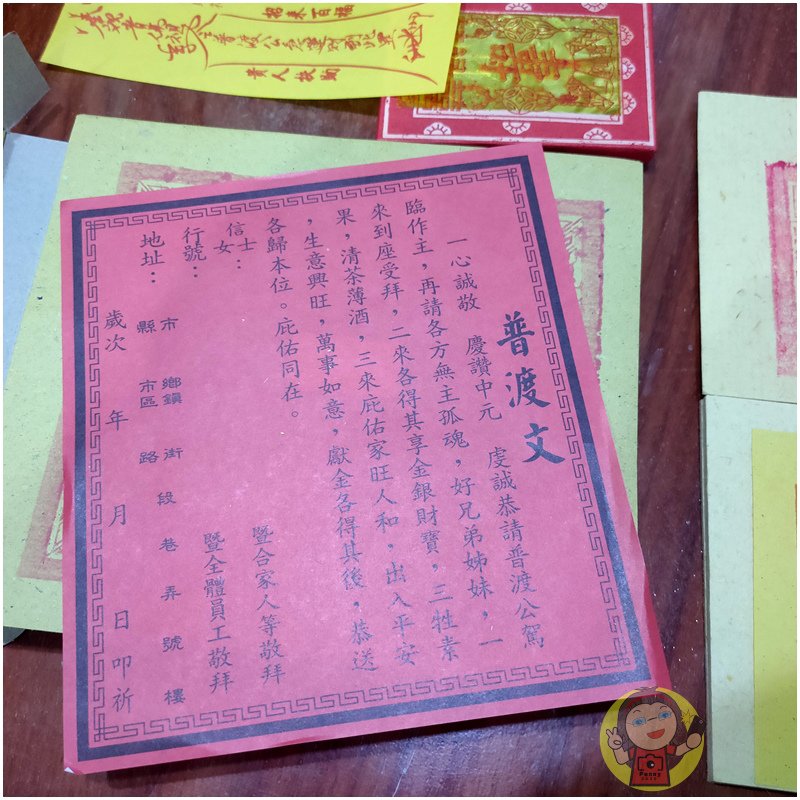 招來百福
貴人扶助
普渡文
一心誠敬　慶讚中元　虔誠恭請普渡公駕
臨作主，再請各方無主孤魂，好兄弟姊妹，一
來到座受拜，二來各得其享金銀財寶，三牲素
果，清茶薄酒，三來庇佑家旺人和，出入平安
，生意興旺，萬事如意，獻金各得其後，恭送
各歸本位。庇佑同在。
信士女：　暨合家人等敬拜
行號：　暨全體員工敬拜
地址：　市縣　鄉鎮市區　街路　段　巷　弄　號　樓
歲次　年　月　日叩祈
Penny